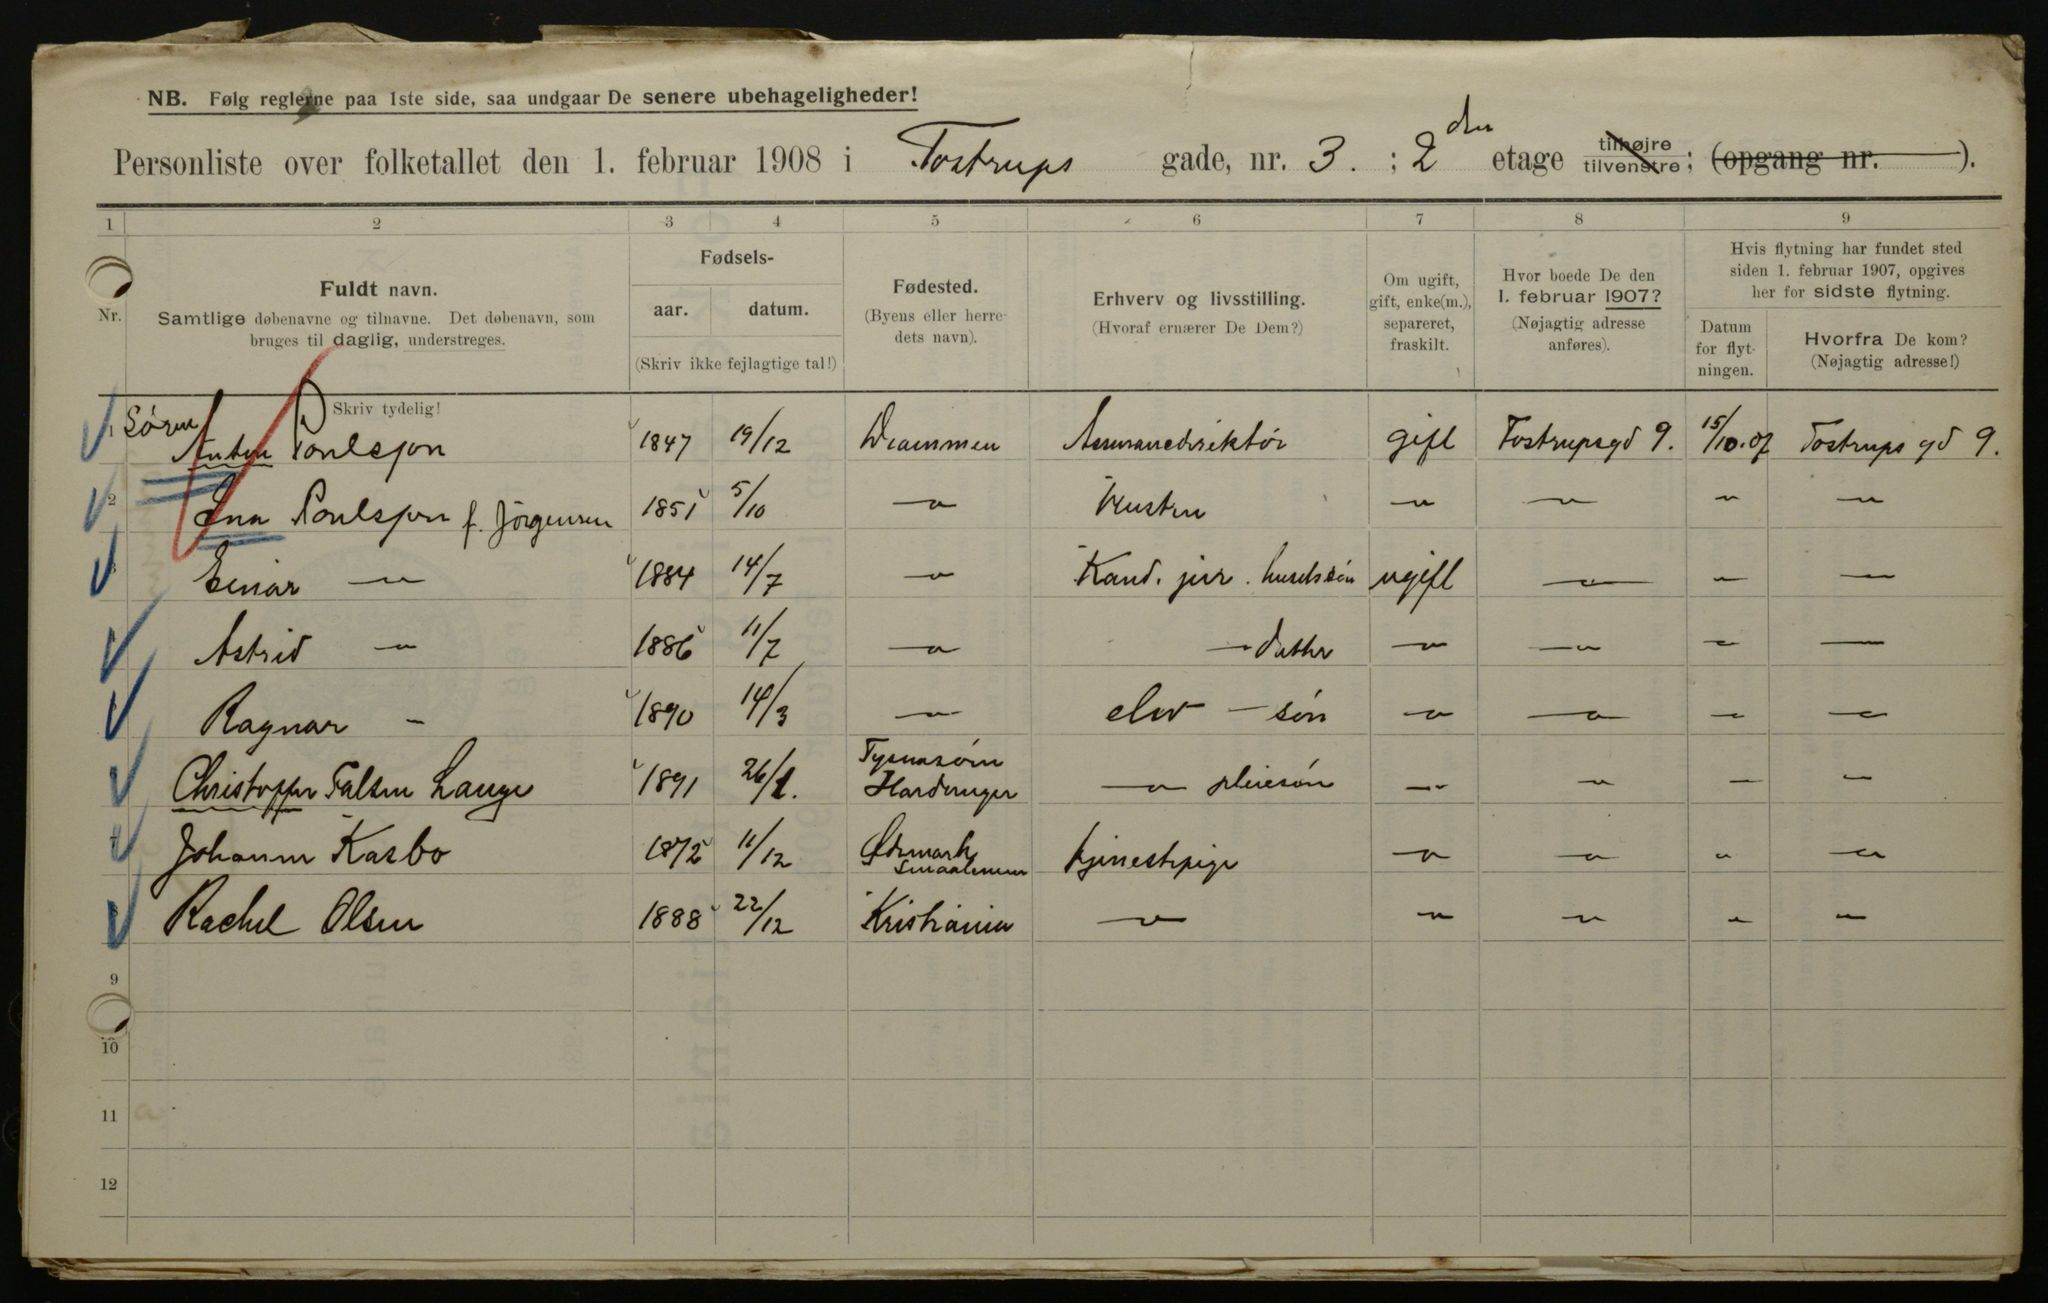 NB. Følg reglerne paa 1ste side, saa undgaar De senere ubehageligheder!
Personliste over folketallet den 1. februar 1908 i Tostrups gade, nr. 3. ; 2den etage tilhøjre tilvenstre ; (opgang nr. ).
1 2 3 4 5 6 7 8 9
Nr.
Fuldt navn.
Samtlige døbenavne og tilnavne. Det døbenavn, som
bruges til daglig, understreges.
Skriv tydelig!
Fødsels-
aar. datum.
(Skriv ikke fejlagtige tal!)
Fødested.
(Byens eller herre-
dets navn).
Erhverv og livsstilling.
(Hvoraf ernærer De Dem?)
Om ugift,
gift, enke(m.),
separeret,
fraskilt.
Hvor boede De den
1. februar 1907?
(Nøjagtig adresse
anføres).
Hvis flytning har fundet sted
siden 1. februar 1907, opgives
her for sidste flytning.
Datum
for flyt-
ningen.
Hvorfra De kom?
(Nøjagtig adresse!)
1 Sören
Anton Poulsson 1847 19/12 Drammen gift Tostrupsgd 9. 15/10.07 Tostrups gd 9.
2 Poulsson f. Jörgensen 1851 5/10 — " — Hustru — " — — " — — " — — " —
3 Einar — " — 1884 14/7 — " — Kand. jur. husets sön ugift — " — — " — — " —
4 Astrid — " — 1886 11/7 — " — — datter — " — — " — — " — —
5 Ragnar — " — 1890 14/3 — " — elev — sön — " — — " — — " — — " —
6 Christopher Falsen Lange 1891 26/1. Tysnesöen
Hardanger — " — pleiesön — " — — " — — — " —
7 Johanne Kasbo 1872 11/12 Ødemark
Smaalenene tjenestepige — " — — " — " — " —
8 Rachel Olsen 1888 22/12 Kristiania — " — — " — — " — — " — — " —
9
10
11
12